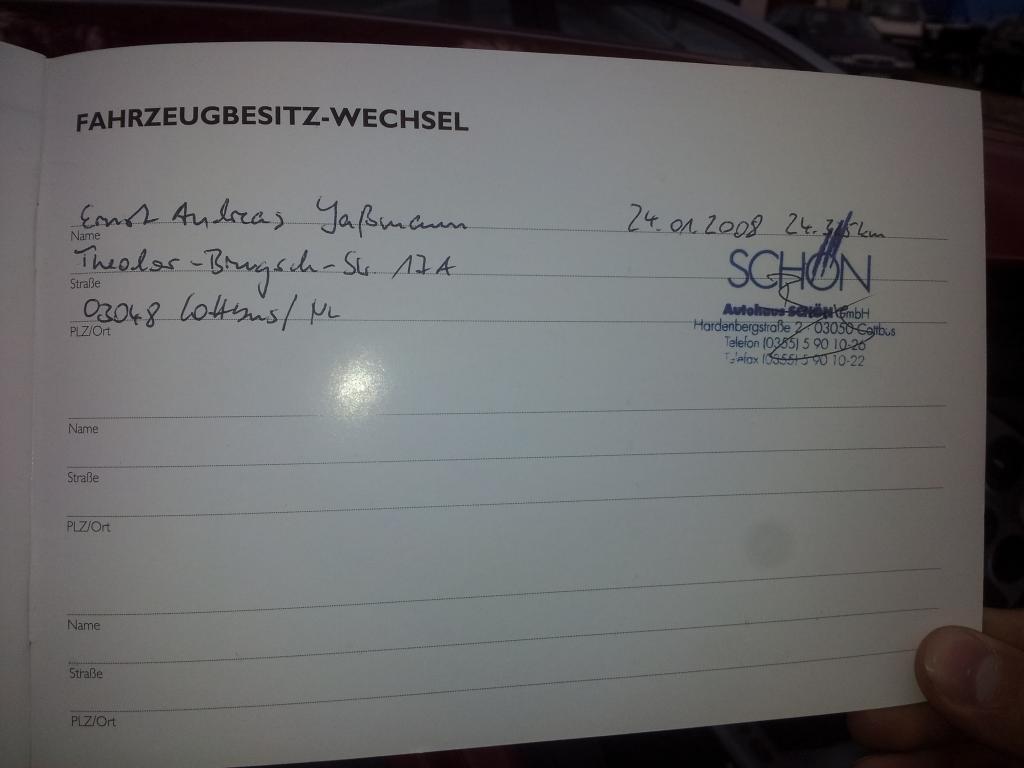 FAHRZEUGBESITZ-WECHSEL
Ernst Andreas 24.01.2008 24. km
Name
Theodor-Brugsch-Str. 17A
Straße
03048 Cottbus/NL
PLZ/Ort
SCHÖN
Autohaus SCHÖN GmbH
Hardenbergstraße 2 · 03050 Cottbus
Telefon (0355) 5 90 10-26
Telefax (0355) 5 90 10-22
Name
Straße
PLZ/Ort
Name
Straße
PLZ/Ort